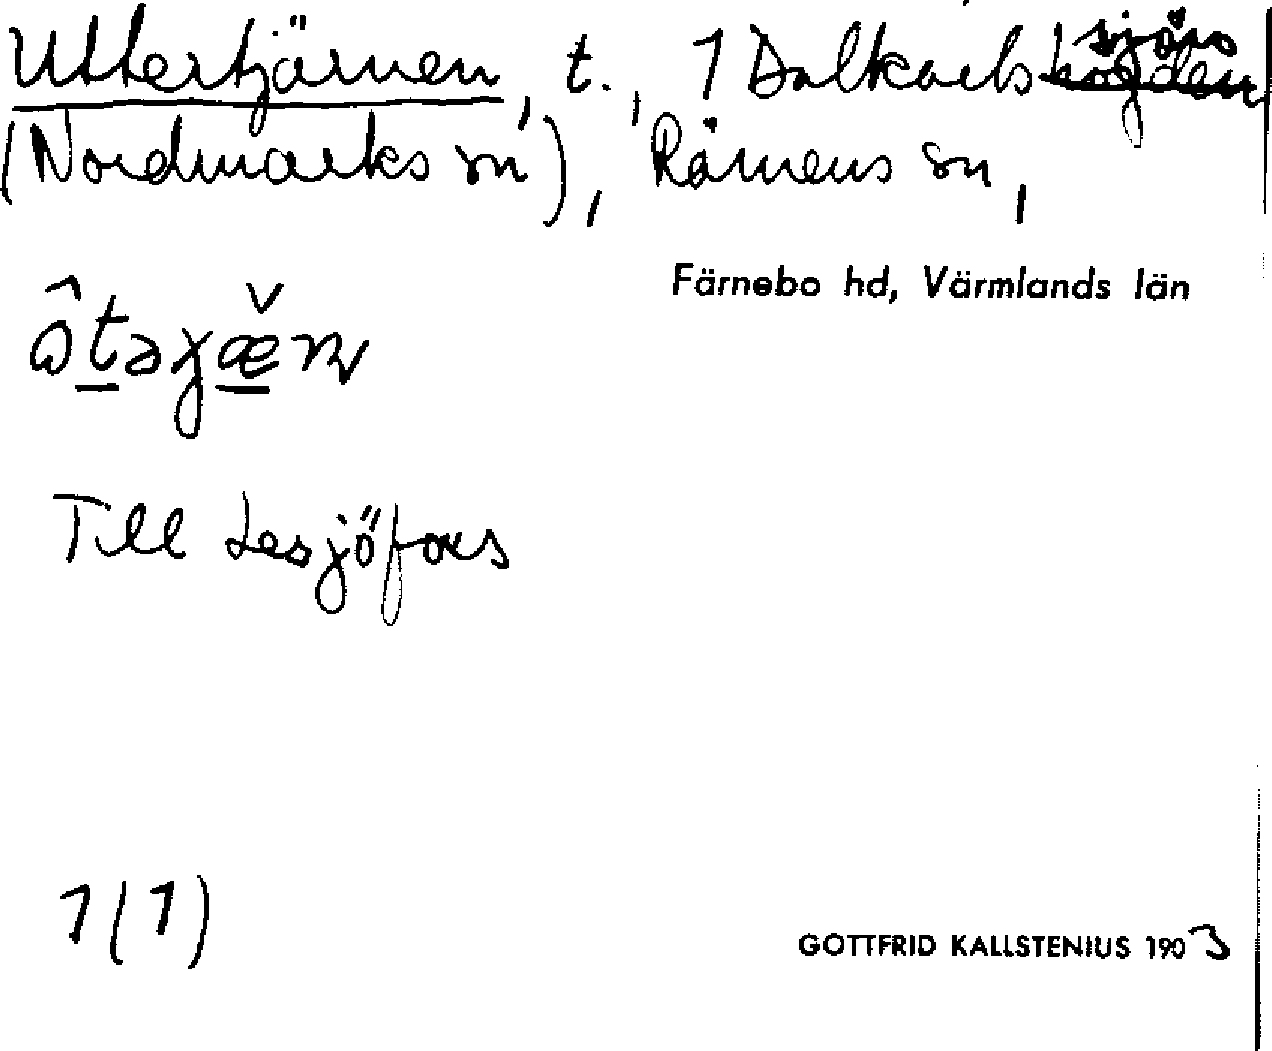 Uttertjärnen, t., 1 Dalkarlssjöns
(Nordmarks sn), Rämens sn,
Färnebo hd, Värmlands län
Till Lesjöfors
1(1)
GOTTFRID KALLSTENIUS 1903